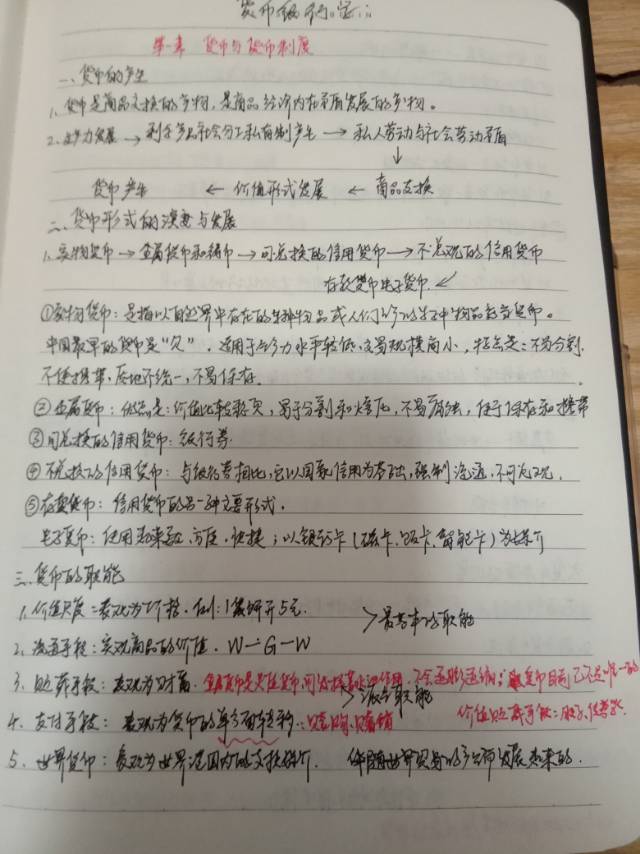 货币银行笔记
第一章 货币与货币制度
一、货币的产生
1、货币是商品交换的产物，是商品经济内在矛盾发展的产物。
2、生产力发展 → 剩余产品社会分工私有制产生 → 私人劳动与社会劳动矛盾
↓
货币产生 ← 价值形式发展 ← 商品交换
二、货币形式的演变与发展
1、实物货币 → 金属货币和铸币 → 可兑换的信用货币 → 不兑现的信用货币
存款货币电子货币 ↙
①实物货币：是指以自然界中存在的某种物品或人们生产的某种物品充当货币。
中国最早的货币是“贝”，适用于生产力水平较低，交易规模商小，特点是：不易分割、
不便携带，质地不统一，不易保存。
②金属货币：优点是：价值比较稳定，易于分割和熔化，不易腐蚀，便于保存和携带
③可兑换的信用货币：银行券
④不兑换的信用货币：与银行券相比，它以国家信用为基础，强制流通，不可兑现，
⑤存款货币：信用货币的另一种主要形式，
电子货币：使用起来更方便、快捷；以银行卡（磁卡、IC卡、智能卡）为媒介
三、货币的职能
1、价值尺度：表现为价格，例：1袋饼干5元． >最基本的职能
2、流通手段：实现商品的价值． W—G—W
3、贮藏手段：表现为财富．金属货币是足值货币，可发挥其 作用，不会通胀通缩； 货币目前已不是唯一的
>派生职能
4、支付手段：表现为货币的单方面转移．：赊购、赊销 价值贮藏手段：股票、债券etc
5、世界货币：表现为世界范围内的交换媒介． 伴随世界贸易的产生而发展起来的．